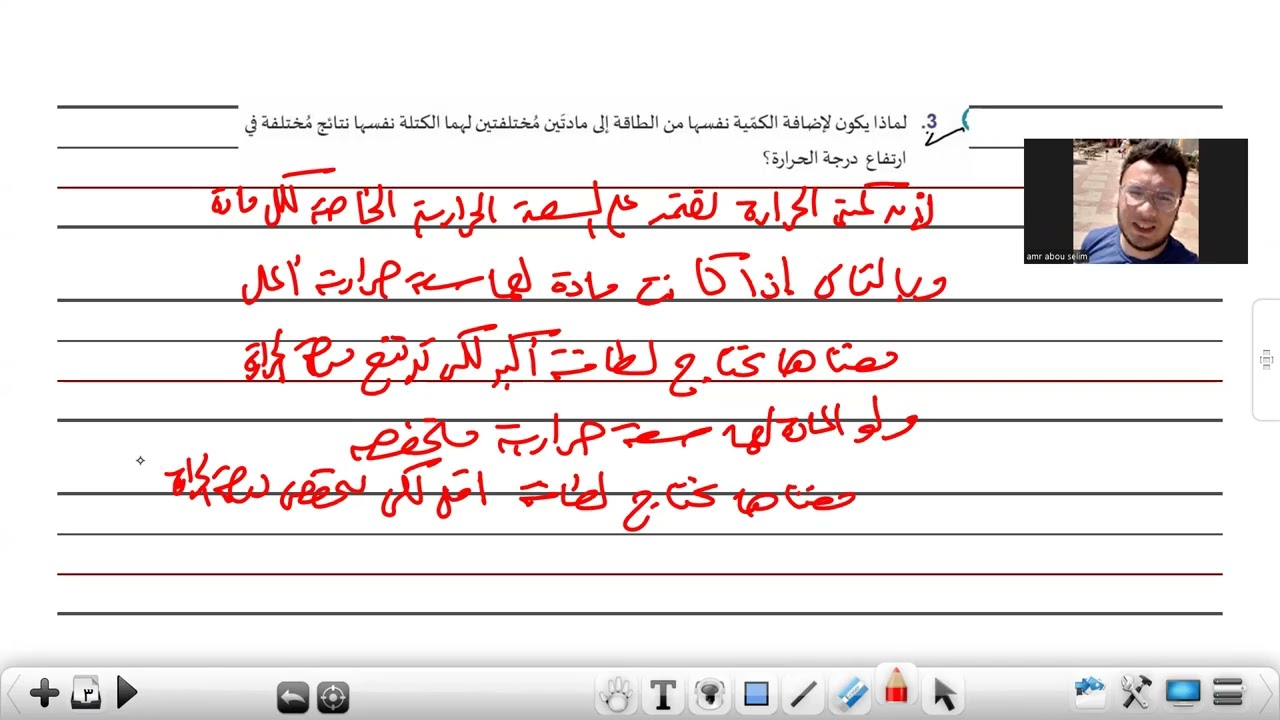 3. لماذا يكون لإضافة الكمّية نفسها من الطاقة إلى مادتَين مُختلفتين لهما الكتلة نفسها نتائج مُختلفة في
ارتفاع درجة الحرارة؟
لأن كمية الحرارة تعتمد على السعة الحرارية الخاصة لكل مادة
وبالتالى إذا كانت مادة لها سعة حرارية أعلى
معناها تحتاج لطاقة أكبر لكى ترتفع درجة حرارة
ولو المادة لها سعة حرارية منخفضه
معناها تحتاج لطاقة اقل لكى درجة حرارة
amr abou selim
٣
T